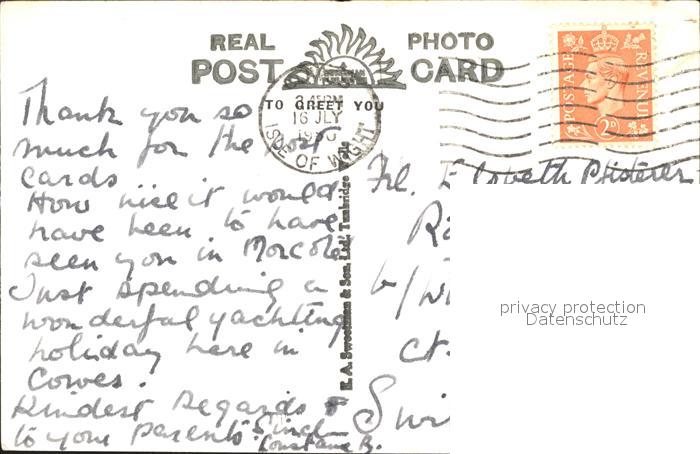 REAL PHOTO
POST CARD
TO GREET YOU
16 JLY
ISLE OF WIGHT
POSTAGE REVENUE
2D
Thank you so
much for the post
cards
How nice it would
have been to have
seen you in Morcote
Just spending a
wonderful yachting
holiday here in
Cowes.
Kindest Regards
to your parents
Constance B.
E. A. Sweetman & Son, Ltd., Tunbridge Wells
Frl. Elsbeth Pfisterer
b/W
Ct.
privacy protection
Datenschutz